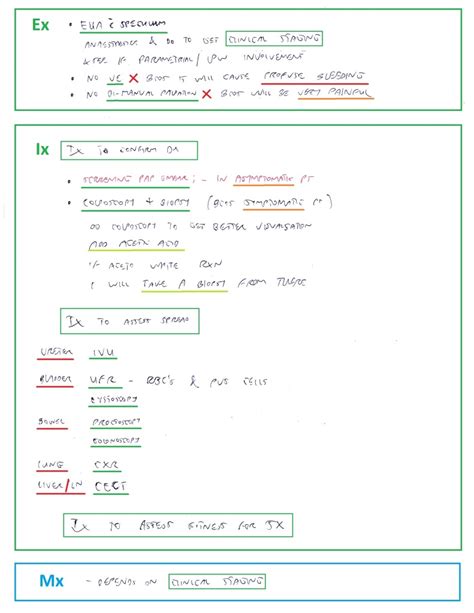 Ex
• EUA c̄ SPECULUM
ANAESTHETISE & DO TO GET CLINICAL STAGING
& SEE IF PARAMETRIAL / PW INVOLVEMENT
• NO VE ✗ BCOS IT WILL CAUSE PROFUSE BLEEDING
• NO BI-MANUAL PALPATION ✗ BCOS WILL BE VERY PAINFUL
Ix
Ix TO CONFIRM DX
• SCREENING PAP SMEAR :- IN ASYMPTOMATIC PT
• COLPOSCOPY + BIOPSY (BCOS SYMPTOMATIC PT)
DO COLPOSCOPY TO GET BETTER VISUALISATION
ADD ACETIC ACID
IF ACETO WHITE RXN
I WILL TAKE A BIOPSY FROM THERE
Ix TO ASSESS SPREAD
URETER IVU
BLADDER UFR - RBC'S & PUS CELLS
CYSTOSCOPY
BOWEL PROCTOSCOPY
COLONOSCOPY
LUNG CXR
LIVER/LN CECT
Ix TO ASSESS FITNESS FOR SX
Mx - DEPENDS ON CLINICAL STAGING